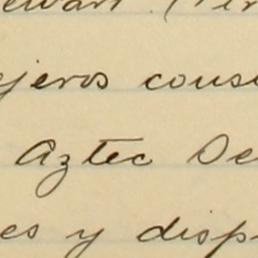 ewart. (Per
ejeros cons
Aztec De
es y disp